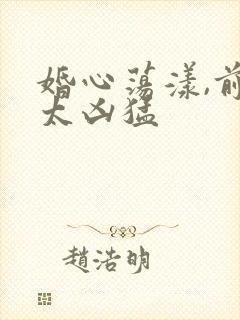 婚心荡漾,前
太凶猛
赵浩明